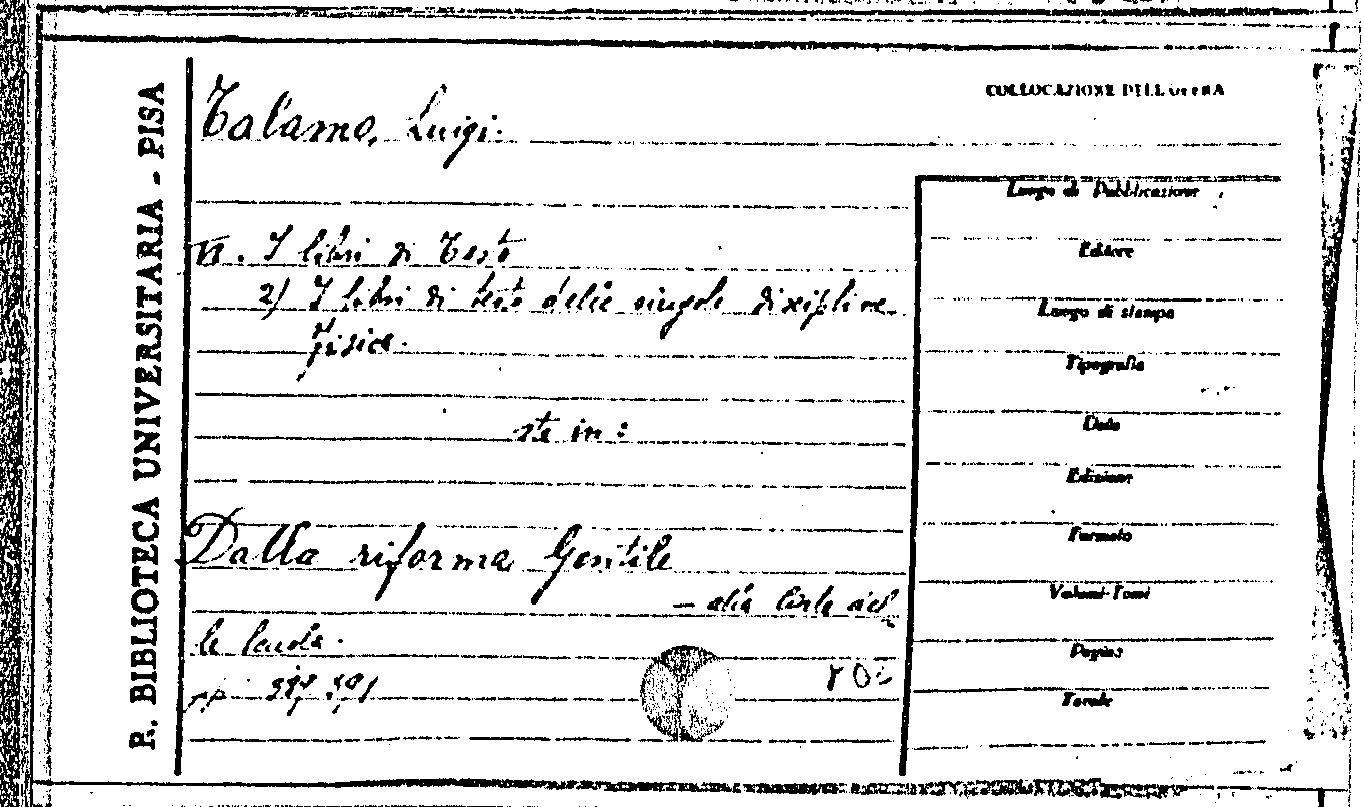 R. BIBLIOTECA UNIVERSITARIA - PISA
Talamo, Luigi.
VI. I libri di testo
2) I libri di testo delle singole discipline
fisica.
sta in:
Dalla riforma Gentile
- alla Carta del
la Scuola.
pp.
COLLOCAZIONE DELL'OPERA
Luogo di Pubblicazione
Editore
Luogo di stampa
Tipografia
Data
Edizione
Formato
Volumi-Tomi
Pagine
Tavole